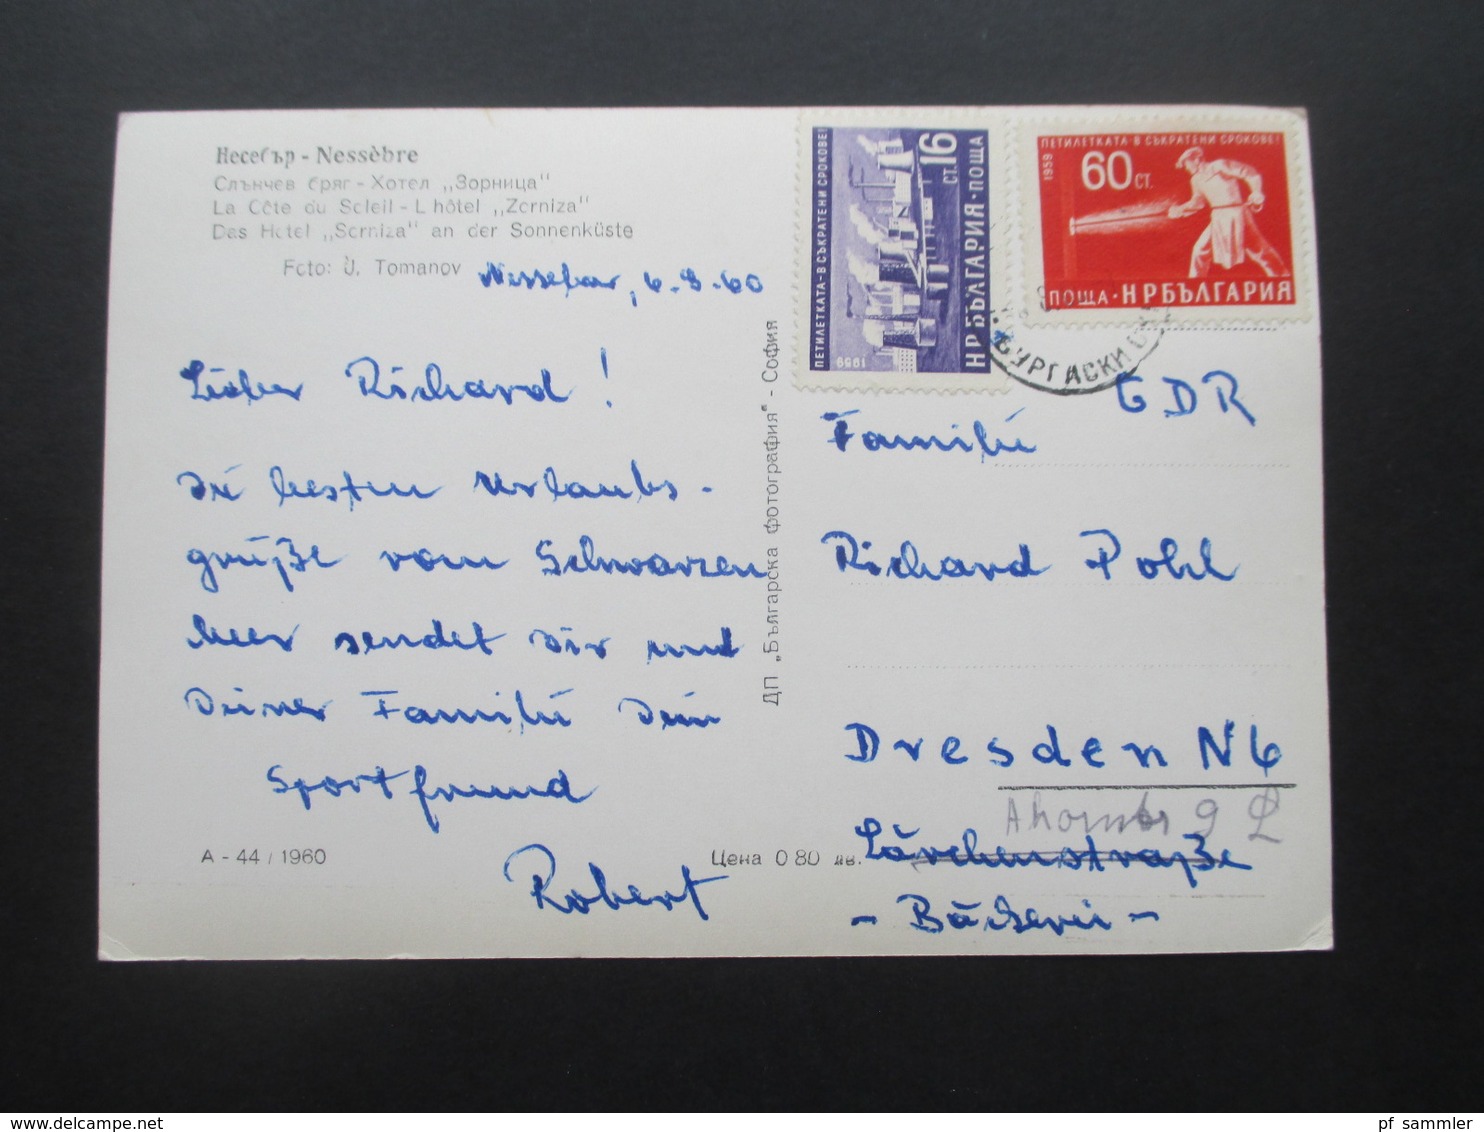 Несебър - Nessèbre
Слънчев бряг - Хотел „Зорница"
La Côte du Soleil - L hôtel „Zorniza"
Das Hotel „Sorniza" an der Sonnenküste
Foto: J. Tomanov
Nessebar, 6.8.60
Lieber Richard!
Die besten Urlaubs-
grüße vom Schwarzen
Meer sendet Dir und
Deiner Familie Dein
Sportfreund
Robert
A - 44 / 1960
Цена 0 80 лв.
ДП „Българска фотография" - София
ПЕТИЛЕТКАТА - В СЪКРАТЕНИ СРОКОВЕ!
1959
16 СТ.
НР БЪЛГАРИЯ · ПОЩА
ПЕТИЛЕТКАТА - В СЪКРАТЕНИ СРОКОВЕ!
1959
60 СТ.
ПОЩА · НРБЪЛГАРИЯ
БУРГАСКИ
GDR
Familie
Richard Pohl
Dresden N 6
Ahornstr 9
Lärchenstraße
- Bäckerei -
pf_sammler